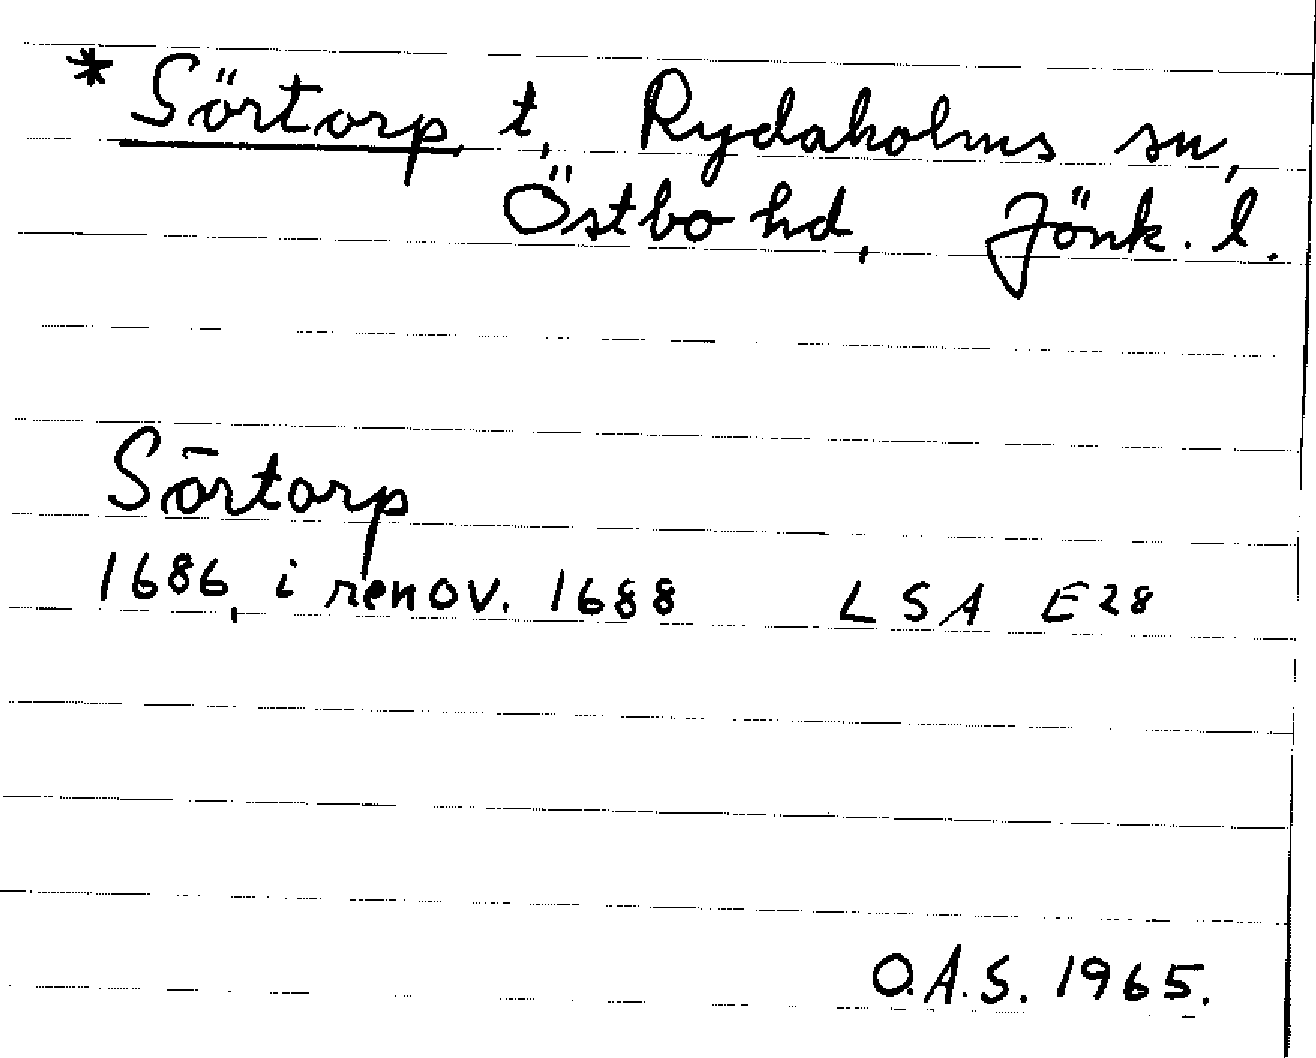 * Sörtorp t, Rydaholms sn,
Östbo hd, Jönk. l.
Sōrtorp
1686, i renov. 1688 LSA E28
O.A.S. 1965.